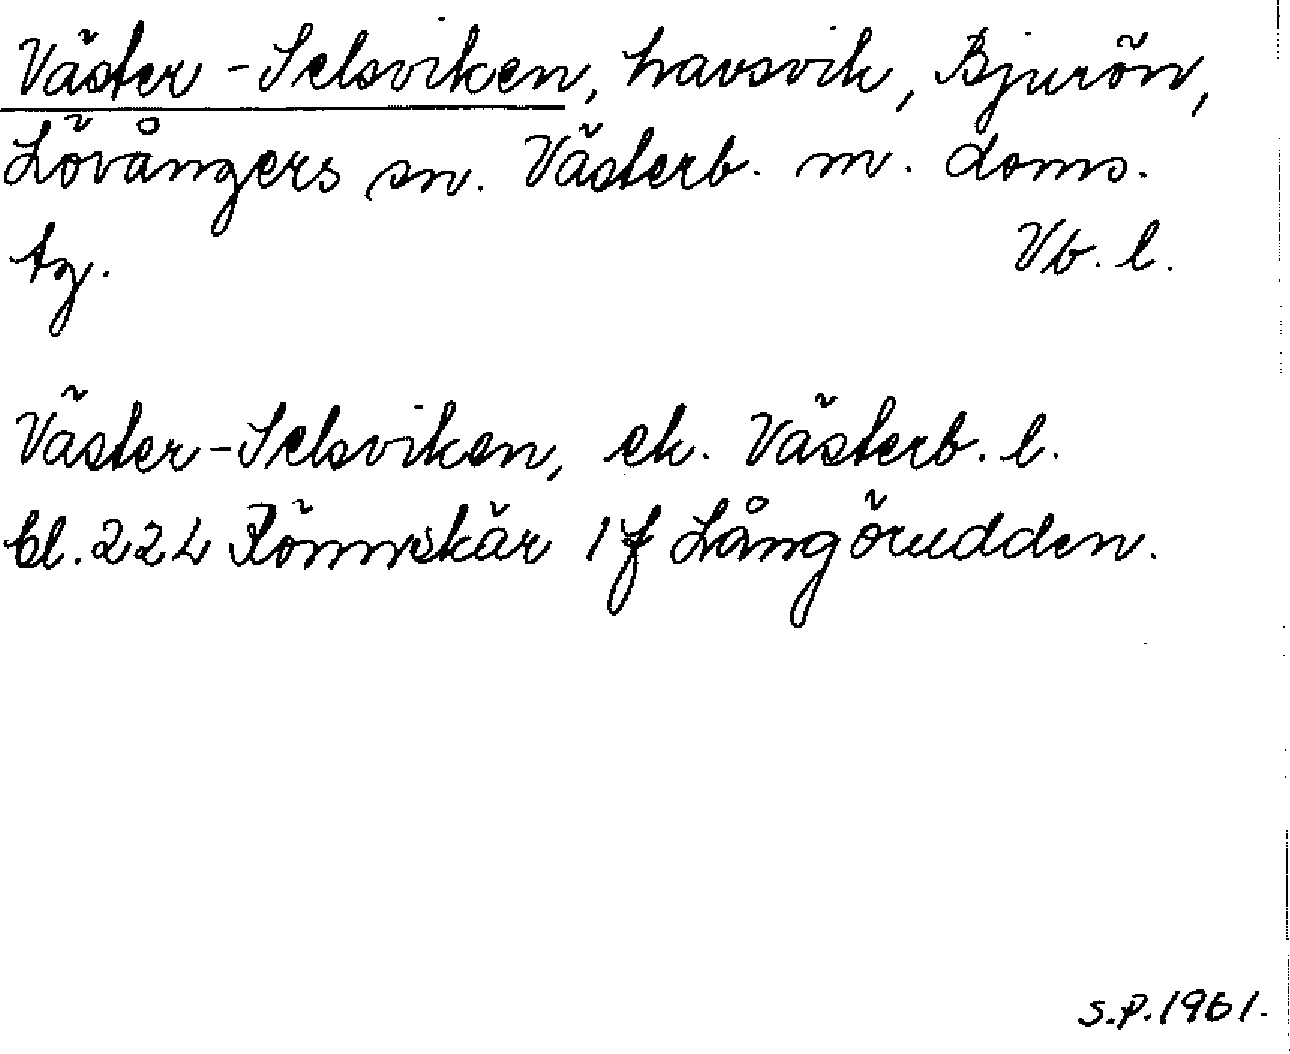 Väster-Selsviken, havsvik, Bjurön,
Lövångers sn. Västerb. m. doms.
tg. Vb. l.
Väster-Selsviken, ek. Västerb. l.
bl. 22 L Rönnskär 1f Långörudden.
S.P. 1961.